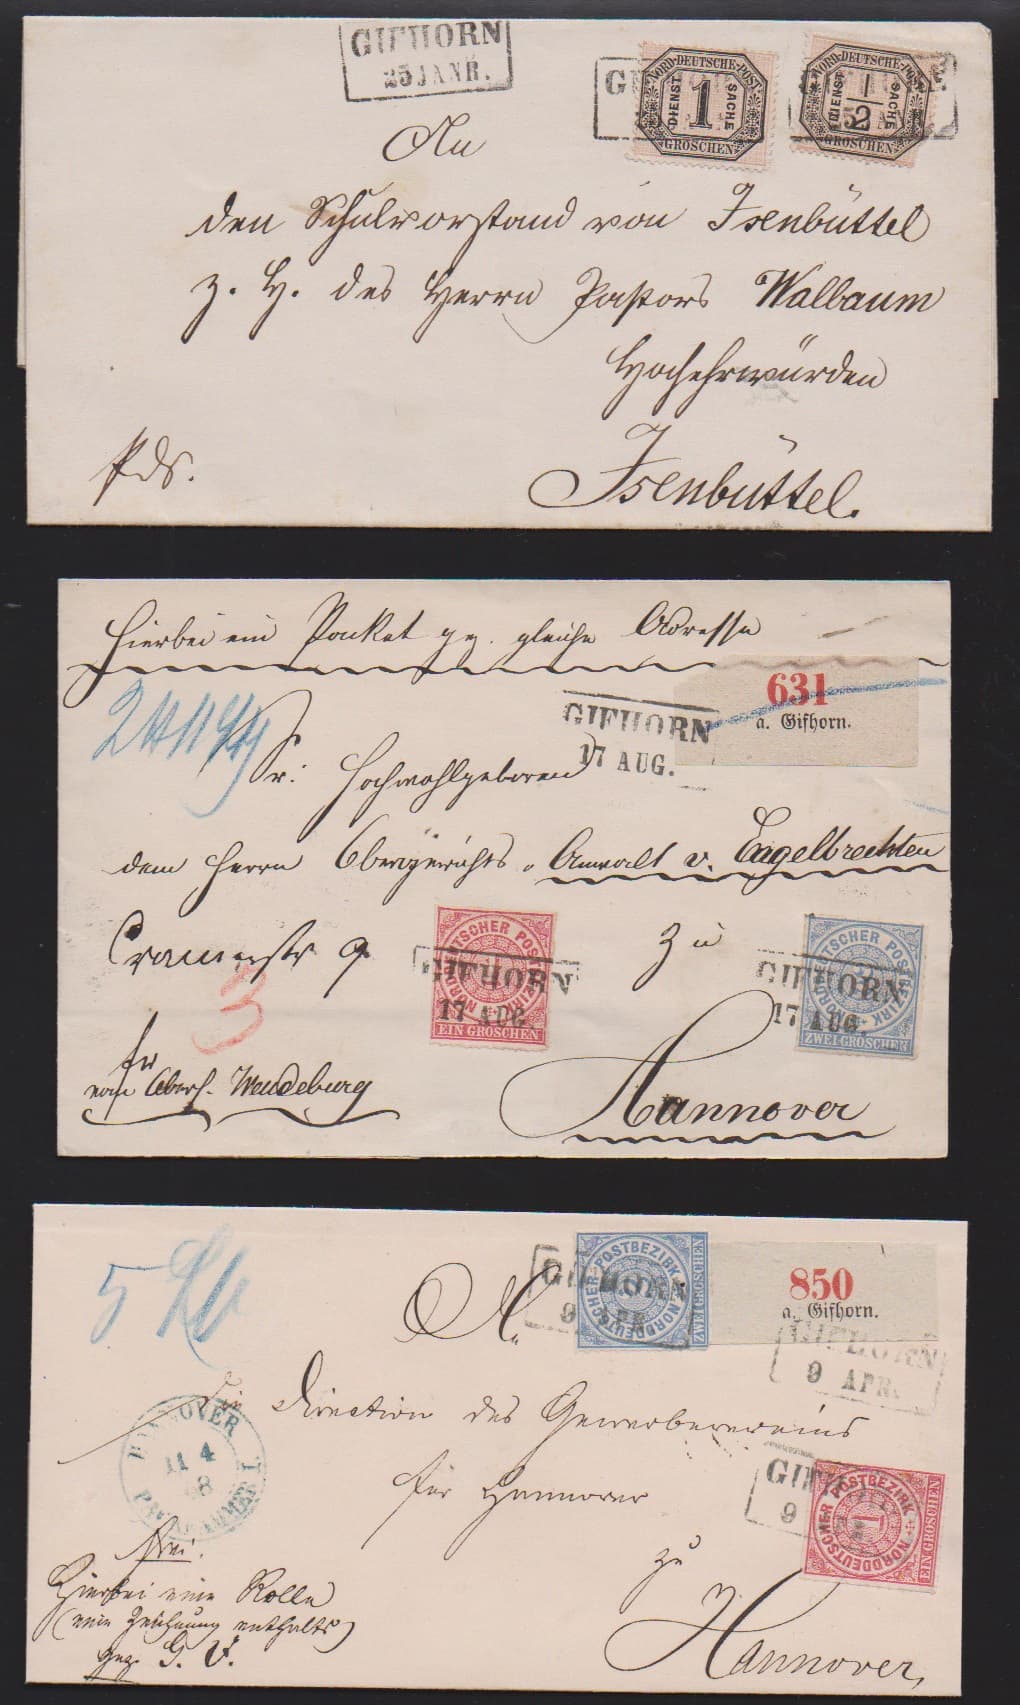 GIFHORN
25 JANR.
NORD-DEUTSCHE-POST
DIENST 1 SACHE
GROSCHEN
NORD-DEUTSCHE-POST
DIENST 1/2 SACHE
GROSCHEN
An
den Schulvorstand von Isenbüttel
z. H. des Herrn Pastors Walbaum
Hochehrwürden
Isenbüttel.
Hierbei ein Packet gez. gleiche Adresse
631
a. Gifhorn.
GIFHORN
17 AUG.
Sr. Hochwohlgeboren
dem Herrn Obergerichts-Anwalt v. Engelbrechten
Cramerstr 9
zu
3
NORDDEUTSCHER POSTBEZIRK
1
EIN GROSCHEN
GIFHORN
17 AUG
NORDDEUTSCHER POSTBEZIRK
ZWEI GROSCHEN
GIFHORN
17 AUG.
fr
vom Oberf. Wendeburg
Hannover
5
NORDDEUTSCHER POSTBEZIRK
2
ZWEI GROSCHEN
GIFHORN
9 APR
850
a. Gifhorn.
GIFHORN
9 APR.
An
die Direction des Gewerbevereins
für Hannover
HANNOVER
11 4
frei.
Hierbei eine Rolle
(eine Zeichnung enthalts)
gez. G. V.
GIFHORN
9
NORDDEUTSCHER POSTBEZIRK
1
EIN GROSCHEN
zu
Hannover,